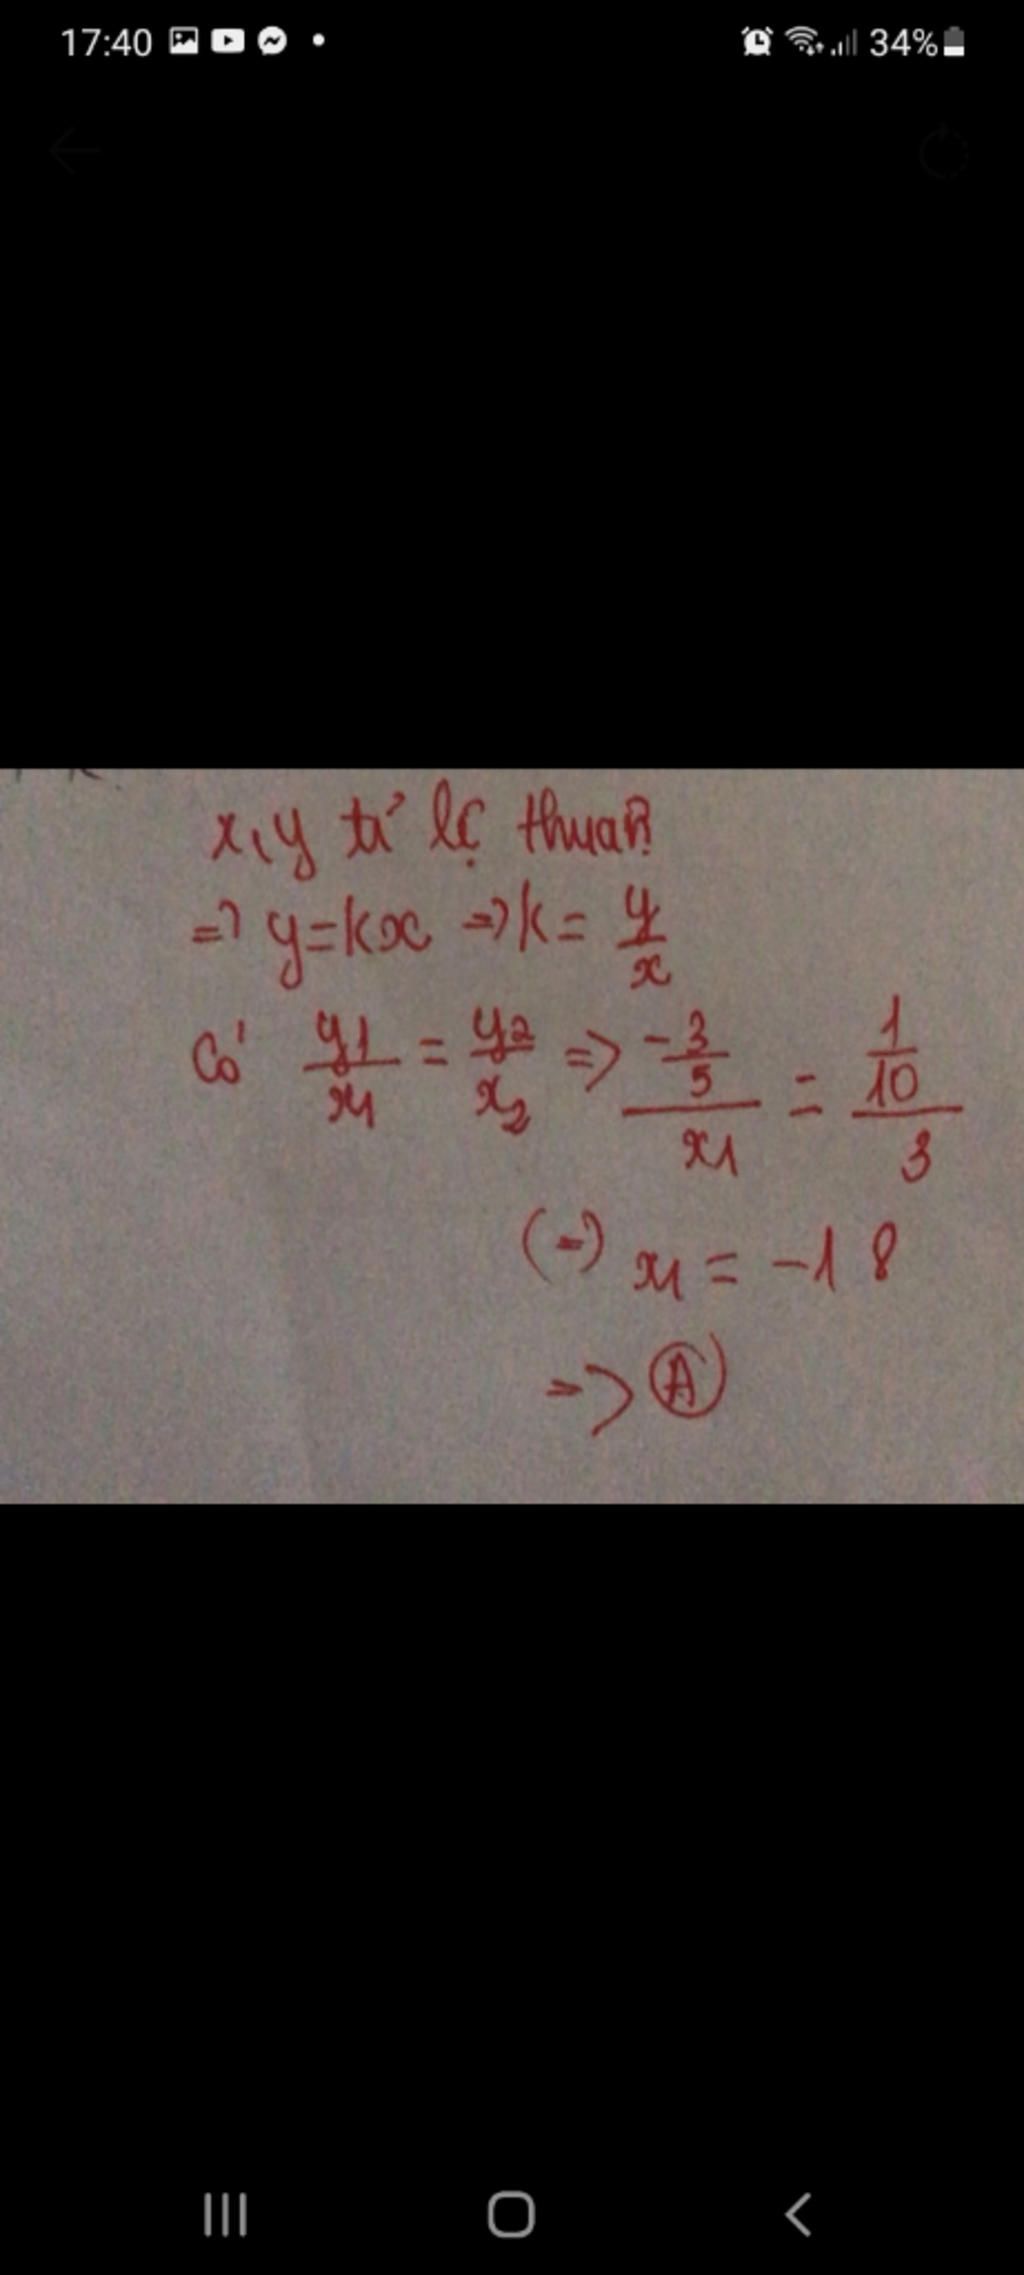 17:40 34%
x,y tỉ lệ thuận
=> y=kx => k= y/x
Có y1/x1 = y2/x2 => (-3/5)/x1 = (1/10)/3
(=) x1 = -18
=> A